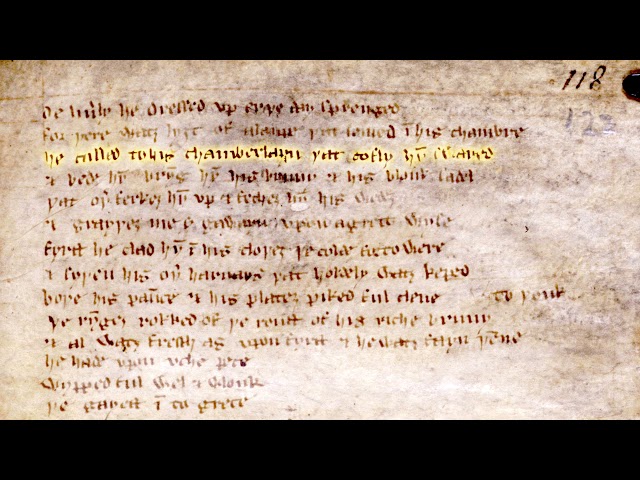 118
123
Deliuerly he dressed vp er þe day sprenged
for þere watz lyȝt of alaumpe þat lemed ī his chambre
he called to his chamberlayn þat cofly hȳ swared
& bede hȳ bryng hȳ his bruny & his blonk sadel
þat oþer ferkez hȳ vp & fechez hȳ his wedez
& grayþez me sir gawayn vpon agrett wyse
fyrst he clad hȳ ī his cloþez þe colde forto were
& syþen his oþer harnays þat holdely watz keped
boþe his paūce & his platez piked ful clene to þonk
þe ryngez rokked of þe roust of his riche bruny
& al watz fresch as vpon fyrst & he watz fayn þēne
he hade vpon vche pece
wypped ful wel & wlonk
þe gayest ī to grece